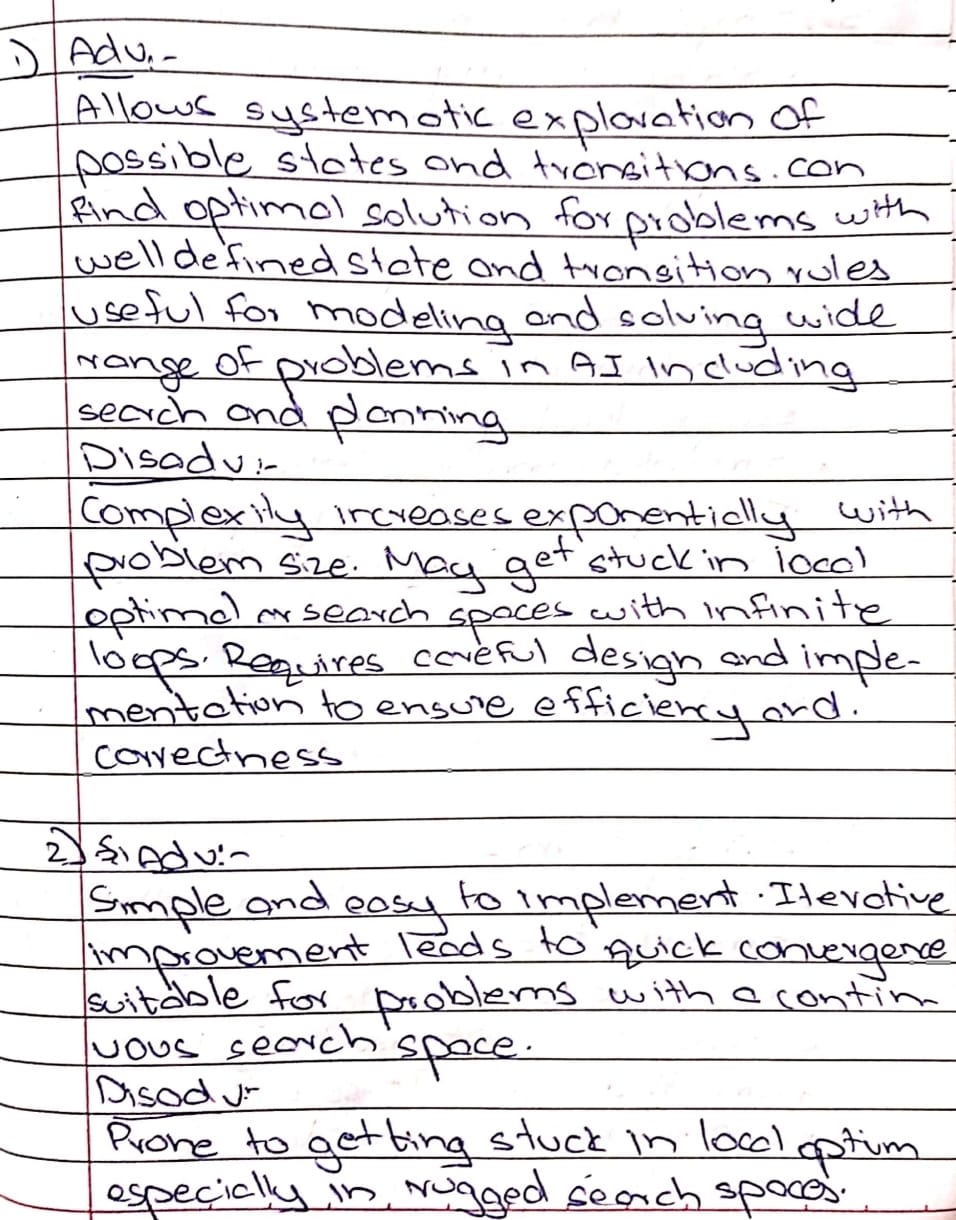 1) Adv:-
Allows systematic exploration of
possible states and transitions. can
find optimal solution for problems with
well defined state and transition rules
useful for modeling and solving wide
range of problems in AI Including
search and planning
Disadv:-
Complexity increases exponentially with
problem size. May get stuck in local
optimal or search spaces with infinite
loops. Requires careful design and imple-
mentation to ensure efficiency and.
correctness
2) Adv:-
Simple and easy to implement. Iterative
improvement leads to quick convergence
suitable for problems with a contin
uous search space.
Disadv:-
Prone to getting stuck in local optim
especially in rugged search spaces.